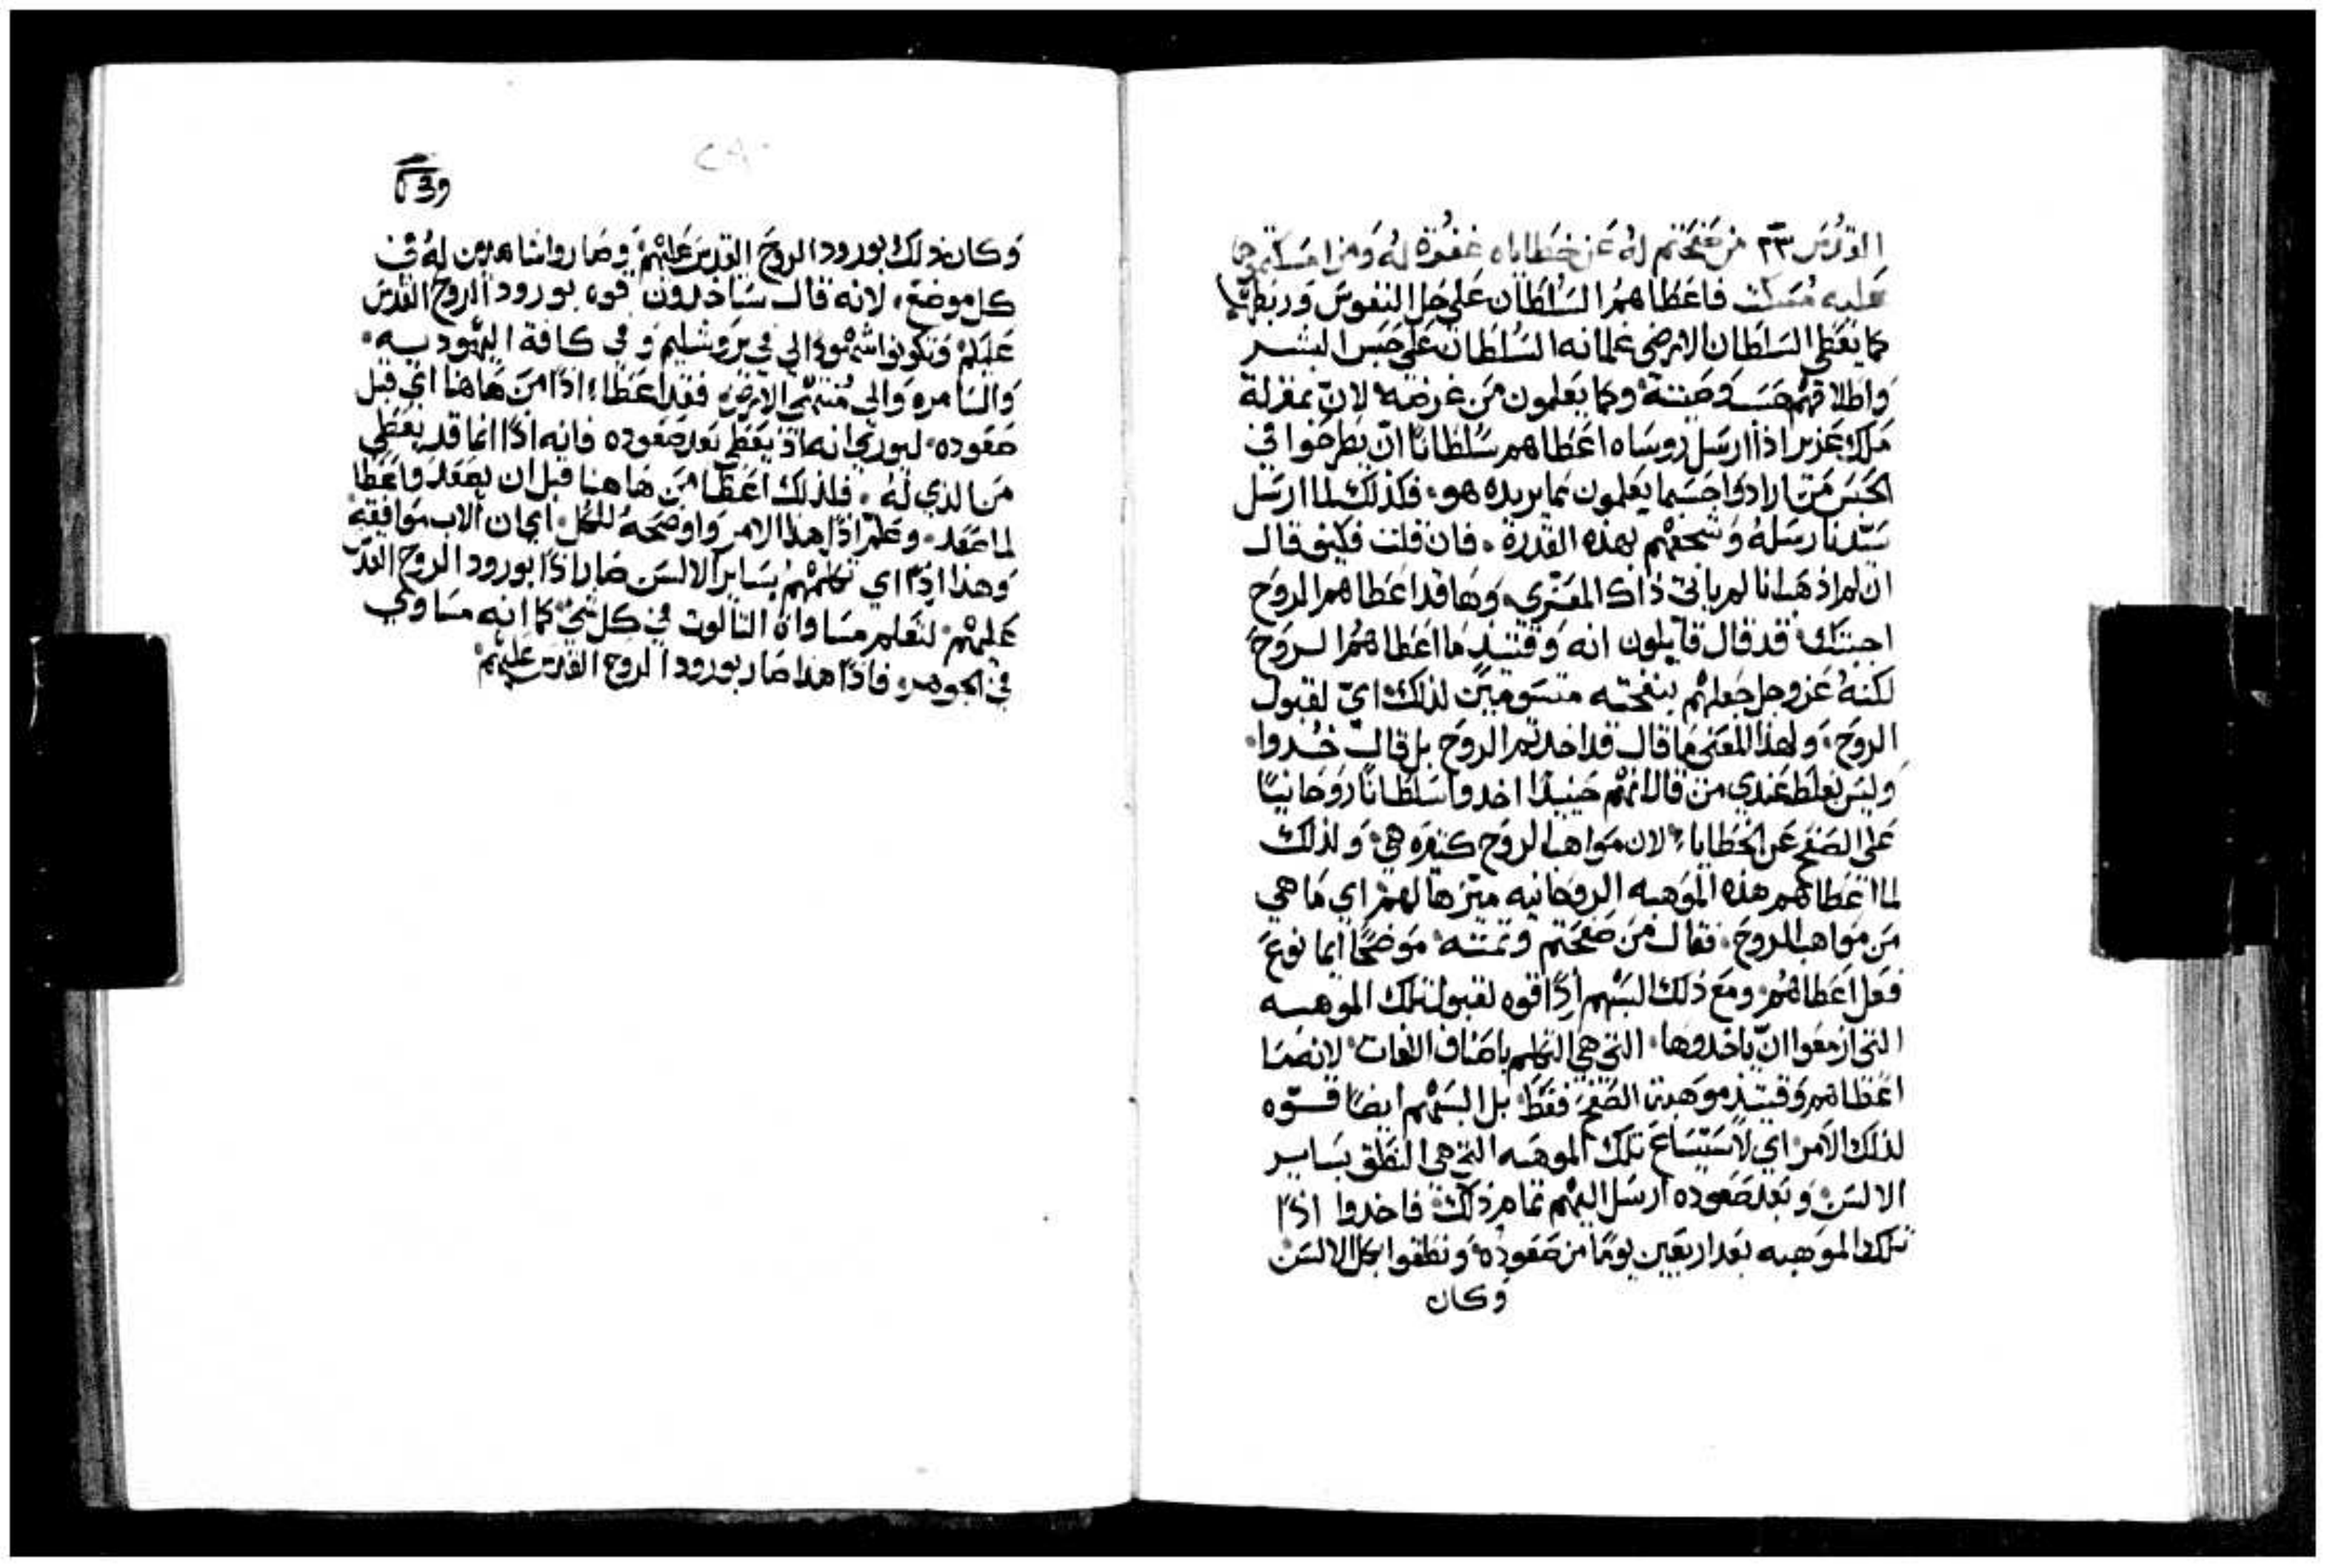 القدس ٢٣ من صفحتم له عن خطاياه غفورة له ومن امسكتموها
عليه مسكت فاعطاهم السلطان على حل النفوس وربطها
كما يعطي السلطان الارضي غلمانه السلطان على حبس البشر
واطلاقهم حسب وصيته وكما يعلمون من غرضه لان بمنزلة
ملك عزيز اذا ارسل روساه اعطاهم سلطانا ان يطرحوا في
الحبس من ارادوا حسبما يعلمون بما يريده هو، فكذلك لما ارسل
سيدنا رسله وشحعهم بهذه القدرة. فان قلت فكيف قال
ان لم اذهب انا لم ياتي ذاك المعزي وها قد اعطاهم الروح
اجبتك قد قال قايلون انه وقتيذ ما اعطاهم الروح
لكنه عز وجل جعلهم بنفخته مستوجبين لذلك اي لقبول
الروح، ولهذا المعنى ما قال قد اخدتم الروح بل قال خدوا
وليس يغلط عندي من قال انهم حينيذا اخدوا سلطانا روحانيا
على الصفح عن الخطايا، لان مواهب الروح كتيره هي، ولذلك
لما اعطاهم هذه الموهبه الروحانيه ميزها لهم اي ما هي
من مواهب الروح، فقال من صفحتم وتمته موضحا ايما نوع
فعل اعطاهم، ومع ذلك البسهم اذا قوه لقبول تلك الموهبه
التي ازمعوا ان ياخدوها. التي هي التكلم باصناف اللغات
اعطاهم وقتيذ موهبة الصفح فقط بل البسهم ايضا قوه
لذلك الامر اي تلك الموهبه التي هي النطق بساير
الالسن، وبعد صعوده ارسل اليهم تمام ذلك فاخدوا اذا
تلك الموهبه بعد اربعين يوما من صعوده ونطقوا بكل الالسن
وكان
وكان ذلك بورود الروح القدس عليهم وصاروا شاهدين له في
كل موضع، لانه قال ستاخدون قوه بورود الروح القدس
عليكم وتكونوا شهودا لي في يروشليم وفي كافة اليهوديه.
والسامره والى منتهى الارض، فقد اعطا اذا من هاهنا اي قبل
صعوده، ليوري انه ماذا يعطي بعد صعوده فانه اذا انما قد يعطي
من الذي له. فلذلك اعطا من هاهنا قبل ان يصعد واعطا
لما صعد. وعلم اذا هذا الامر واوضحه للكل اي ان الاب موافقه
وهذا اذا اي تكلمهم بساير الالسن صار اذا بورود الروح القدس
عليهم. لتعلم مساواة التالوت في كل شي كما انه مساوي
في الجوهر، فاذا هذا صار بورود الروح القدس عليهم